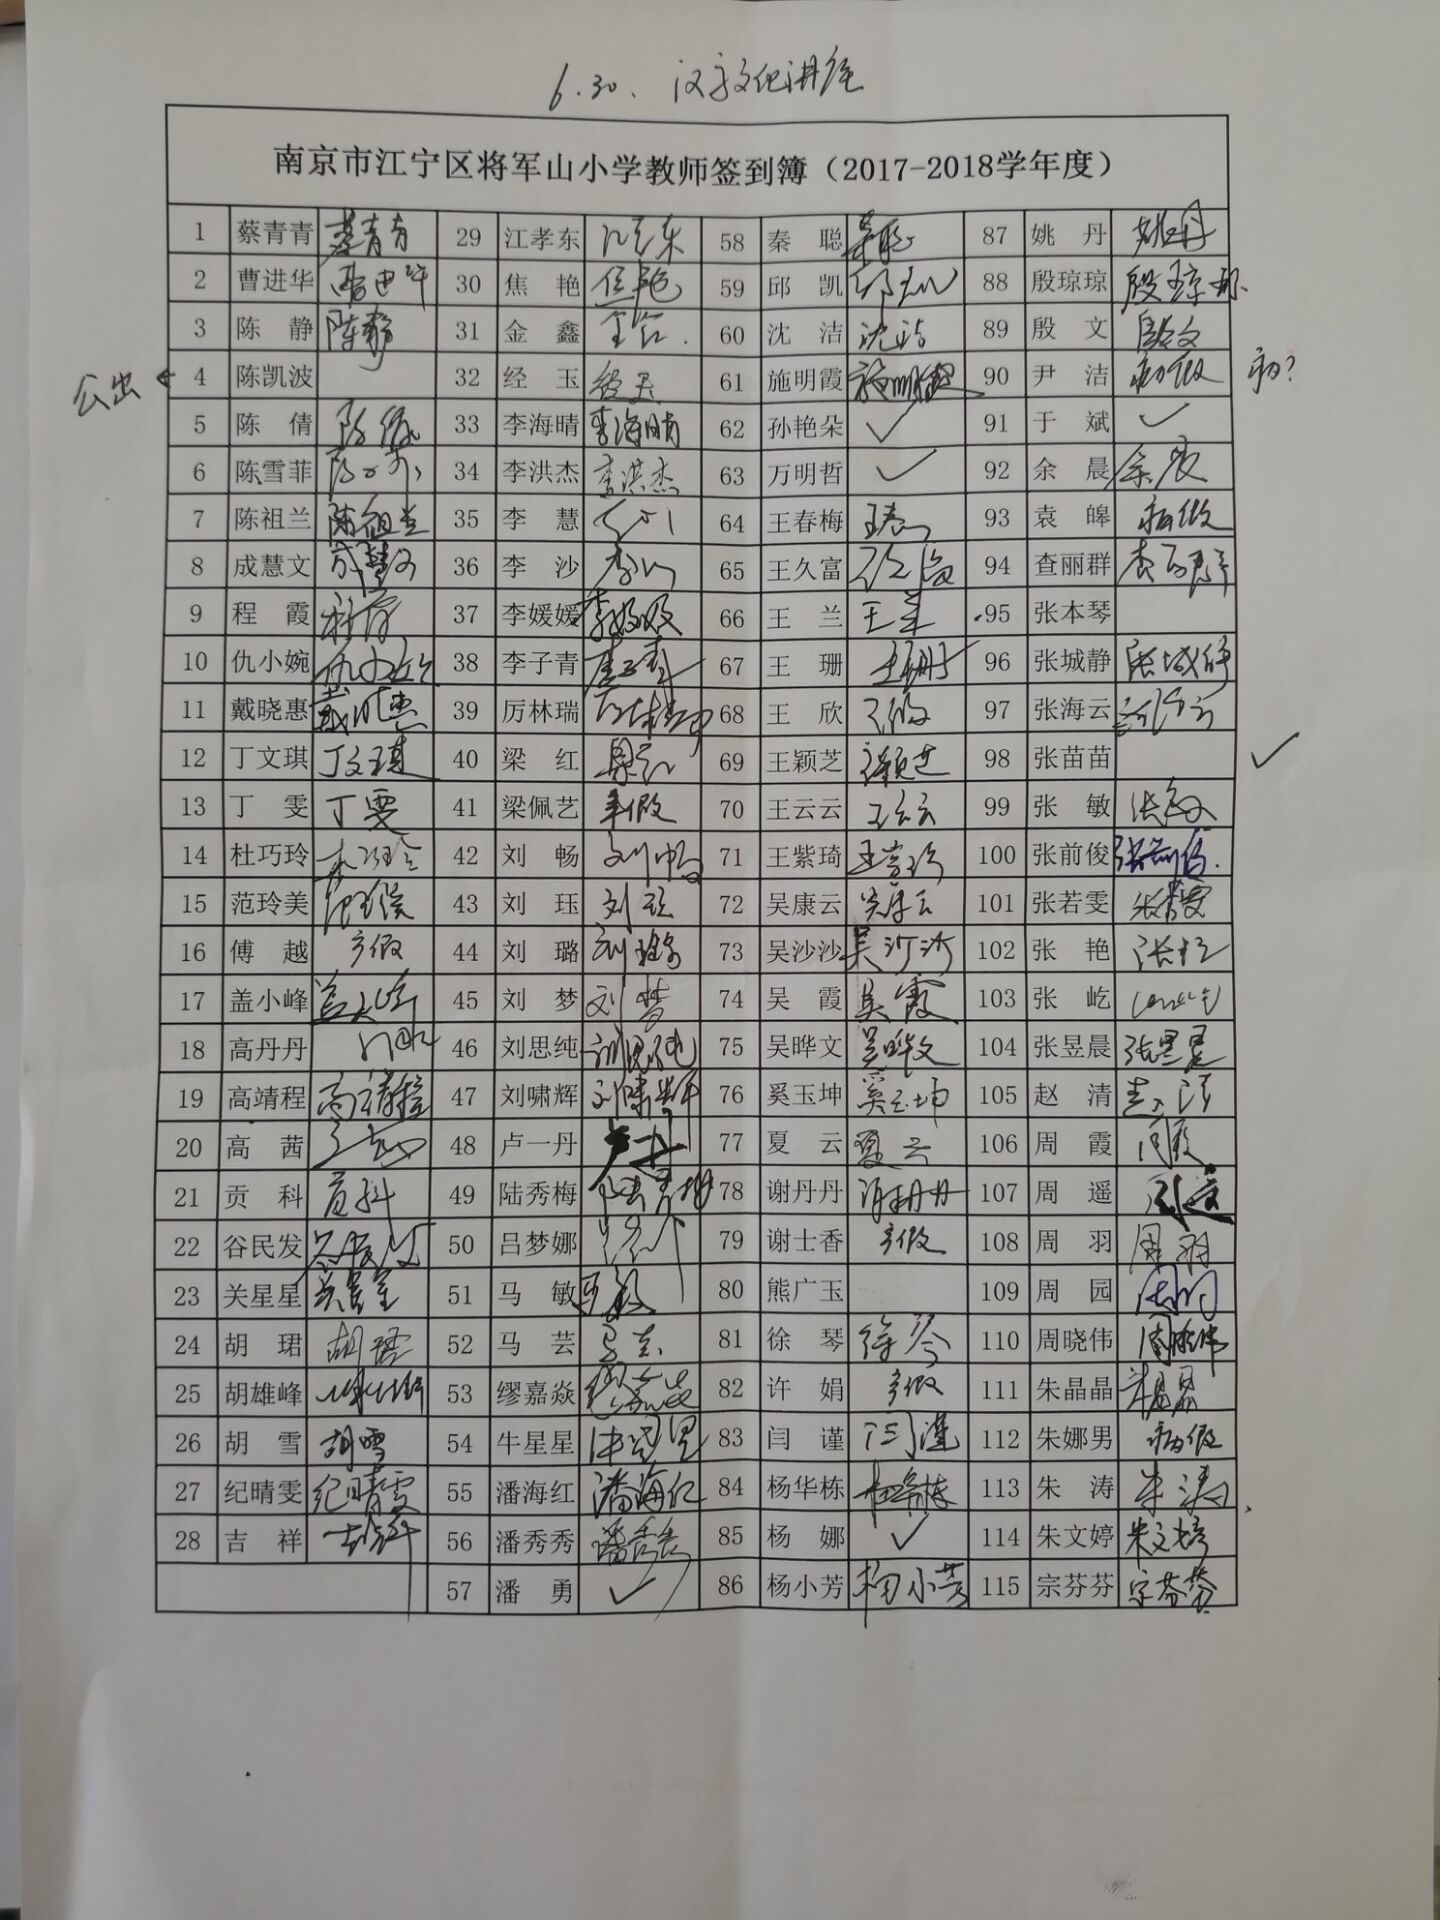 6.30. 汉字文化讲座
南京市江宁区将军山小学教师签到簿（2017-2018学年度）
1 蔡青青 蔡青青 29 江孝东 江孝东 58 秦聪 秦聪 87 姚丹 姚丹
2 曹进华 曹进华 30 焦艳 焦艳 59 邱凯 邱凯 88 殷琼琼 殷琼琼
3 陈静 陈静 31 金鑫 金鑫 60 沈洁 沈洁 89 殷文 殷文
公出 4 陈凯波 32 经玉 经玉 61 施明霞 施明霞 90 尹洁 病假 病?
5 陈倩 陈倩 33 李海晴 李海晴 62 孙艳朵 ✓ 91 于斌 ✓
6 陈雪菲 34 李洪杰 李洪杰 63 万明哲 ✓ 92 余晨 余晨
7 陈祖兰 陈祖兰 35 李慧 64 王春梅 王春 93 袁皞 病假
8 成慧文 成慧文 36 李沙 李沙 65 王久富 94 查丽群 查丽群
9 程霞 程霞 37 李媛媛 李媛媛 66 王兰 王兰 95 张本琴
10 仇小婉 仇小婉 38 李子青 李子青 67 王珊 王珊 96 张城静 张城静
11 戴晓惠 戴晓惠 39 厉林瑞 68 王欣 王欣 97 张海云
12 丁文琪 丁文琪 40 梁红 梁红 69 王颖芝 98 张苗苗 ✓
13 丁雯 丁雯 41 梁佩艺 事假 70 王云云 王云云 99 张敏 张敏
14 杜巧玲 杜巧玲 42 刘畅 刘畅 71 王紫琦 王紫琦 100 张前俊 张前俊
15 范玲美 43 刘珏 刘珏 72 吴康云 吴康云 101 张若雯 张若雯
16 傅越 产假 44 刘璐 刘璐 73 吴沙沙 吴沙沙 102 张艳 张艳
17 盖小峰 盖小峰 45 刘梦 刘梦 74 吴霞 吴霞 103 张屹
18 高丹丹 46 刘思纯 刘思纯 75 吴晔文 吴晔文 104 张昱晨 张昱晨
19 高靖程 高靖程 47 刘啸辉 刘啸辉 76 奚玉坤 奚玉坤 105 赵清 赵清
20 高茜 48 卢一丹 卢一丹 77 夏云 夏云 106 周霞 周霞
21 贡科 贡科 49 陆秀梅 78 谢丹丹 谢丹丹 107 周遥 周遥
22 谷民发 50 吕梦娜 79 谢士香 产假 108 周羽 周羽
23 关星星 关星星 51 马敏 马敏 80 熊广玉 109 周园
24 胡珺 胡珺 52 马芸 马芸 81 徐琴 徐琴 110 周晓伟 周晓伟
25 胡雄峰 53 缪嘉焱 缪嘉焱 82 许娟 产假 111 朱晶晶 朱晶晶
26 胡雪 胡雪 54 牛星星 牛星星 83 闫谨 闫谨 112 朱娜男 病假
27 纪晴雯 纪晴雯 55 潘海红 潘海红 84 杨华栋 杨华栋 113 朱涛 朱涛
28 吉祥 吉祥 56 潘秀秀 潘秀秀 85 杨娜 ✓ 114 朱文婷 朱文婷
57 潘勇 ✓ 86 杨小芳 杨小芳 115 宗芬芬 宗芬芬